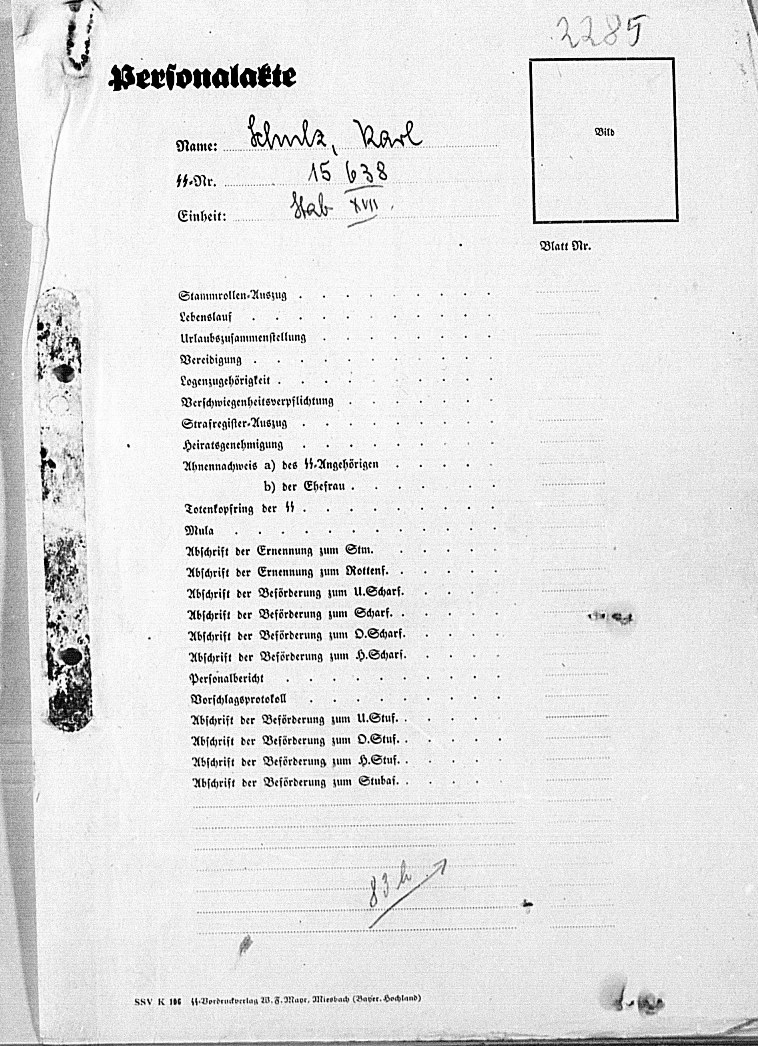 2285
Personalakte
Bild
Name: Schulz, Karl
SS-Nr. 15 638
Einheit: Stab XVII.
Blatt Nr.
Stammrollen-Auszug
Lebenslauf
Urlaubszusammenstellung
Vereidigung
Logenzugehörigkeit
Verschwiegenheitsverpflichtung
Strafregister-Auszug
Heiratsgenehmigung
Ahnennachweis a) des SS-Angehörigen
b) der Ehefrau
Totenkopfring der SS
Mula
Abschrift der Ernennung zum Stm.
Abschrift der Ernennung zum Rottenf.
Abschrift der Beförderung zum U.Scharf.
Abschrift der Beförderung zum Scharf.
Abschrift der Beförderung zum O.Scharf.
Abschrift der Beförderung zum H.Scharf.
Personalbericht
Vorschlagsprotokoll
Abschrift der Beförderung zum U.Stuf.
Abschrift der Beförderung zum O.Stuf.
Abschrift der Beförderung zum H.Stuf.
Abschrift der Beförderung zum Stubaf.
83 h
SSV K 106 SS-Vordruckverlag W. F. Mayr, Miesbach (Bayer. Hochland)